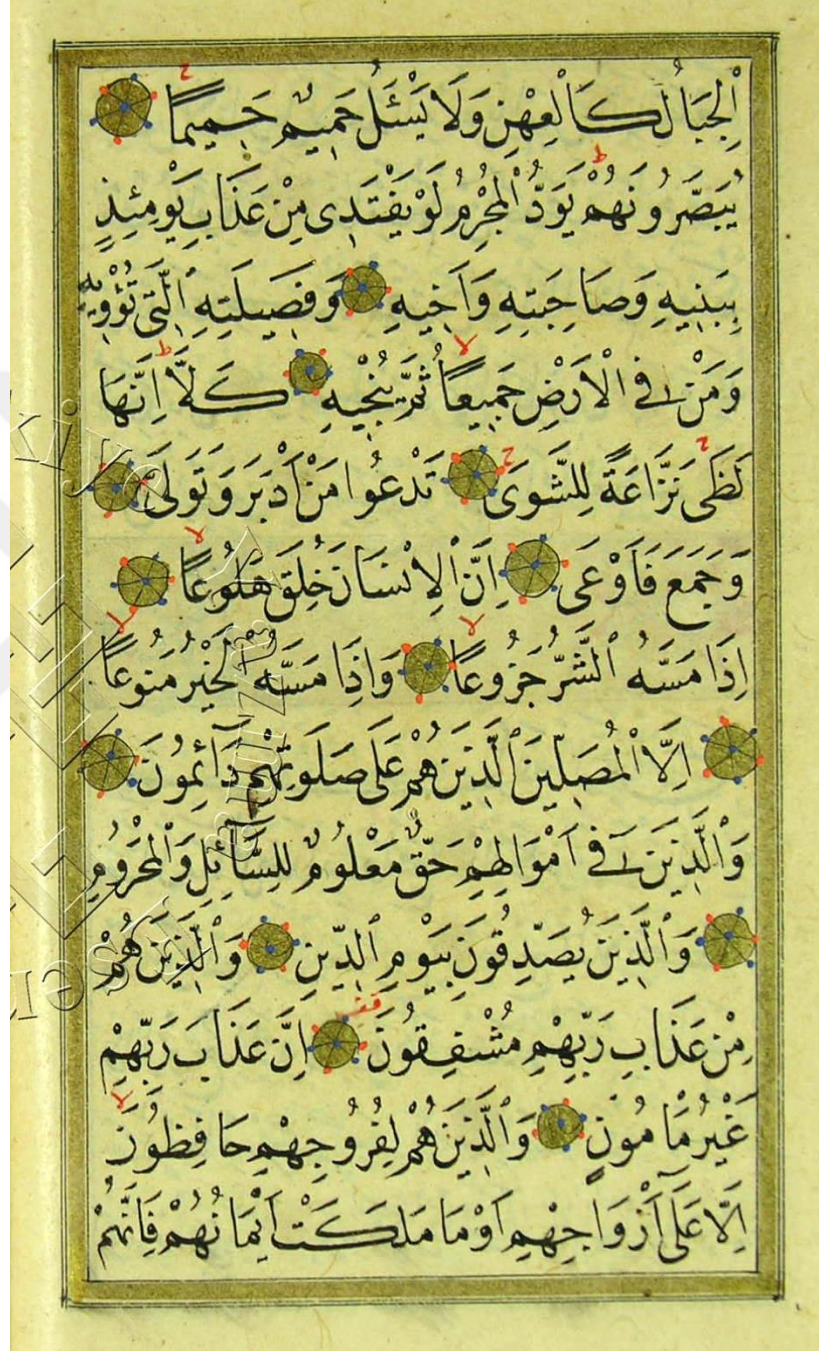 اْلجِبَالُ كَالْعِهْنِ وَلَا يَسْئَلُ حَمِيمٌ حَمِيمًا
يُبَصَّرُونَهُمْ يَوَدُّ الْمُجْرِمُ لَوْ يَفْتَدِى مِنْ عَذَابِ يَوْمِئِذٍ
بِبَنِيهِ وَصَاحِبَتِهِ وَاَخِيهِ وَفَصِيلَتِهِ الَّتِى تُؤْوِيهِ
وَمَنْ فِى الْاَرْضِ جَمِيعًا ثُمَّ يُنْجِيهِ كَلَّا اِنَّهَا
لَظَى نَزَّاعَةً لِلشَّوَى تَدْعُوا مَنْ اَدْبَرَ وَتَوَلَّى
وَجَمَعَ فَاَوْعَى اِنَّ الْاِنْسَانَ خُلِقَ هَلُوعًا
اِذَا مَسَّهُ الشَّرُّ جَزُوعًا وَاِذَا مَسَّهُ الْخَيْرُ مَنُوعًا
اِلَّا الْمُصَلِّينَ الَّذِينَ هُمْ عَلَى صَلَوتِهِمْ دَآئِمُونَ
وَالَّذِينَ فِى اَمْوَالِهِمْ حَقٌّ مَعْلُومٌ لِلسَّآئِلِ وَالْمَحْرُومِ
وَالَّذِينَ يُصَدِّقُونَ بِيَوْمِ الدِّينِ وَالَّذِينَ هُمْ
مِنْ عَذَابِ رَبِّهِمْ مُشْفِقُونَ اِنَّ عَذَابَ رَبِّهِمْ
غَيْرُ مَاْمُونٍ وَالَّذِينَ هُمْ لِفُرُوجِهِمْ حَافِظُونَ
اِلَّا عَلَى اَزْوَاجِهِمْ اَوْ مَا مَلَكَتْ اَيْمَانُهُمْ فَاِنَّهُمْ